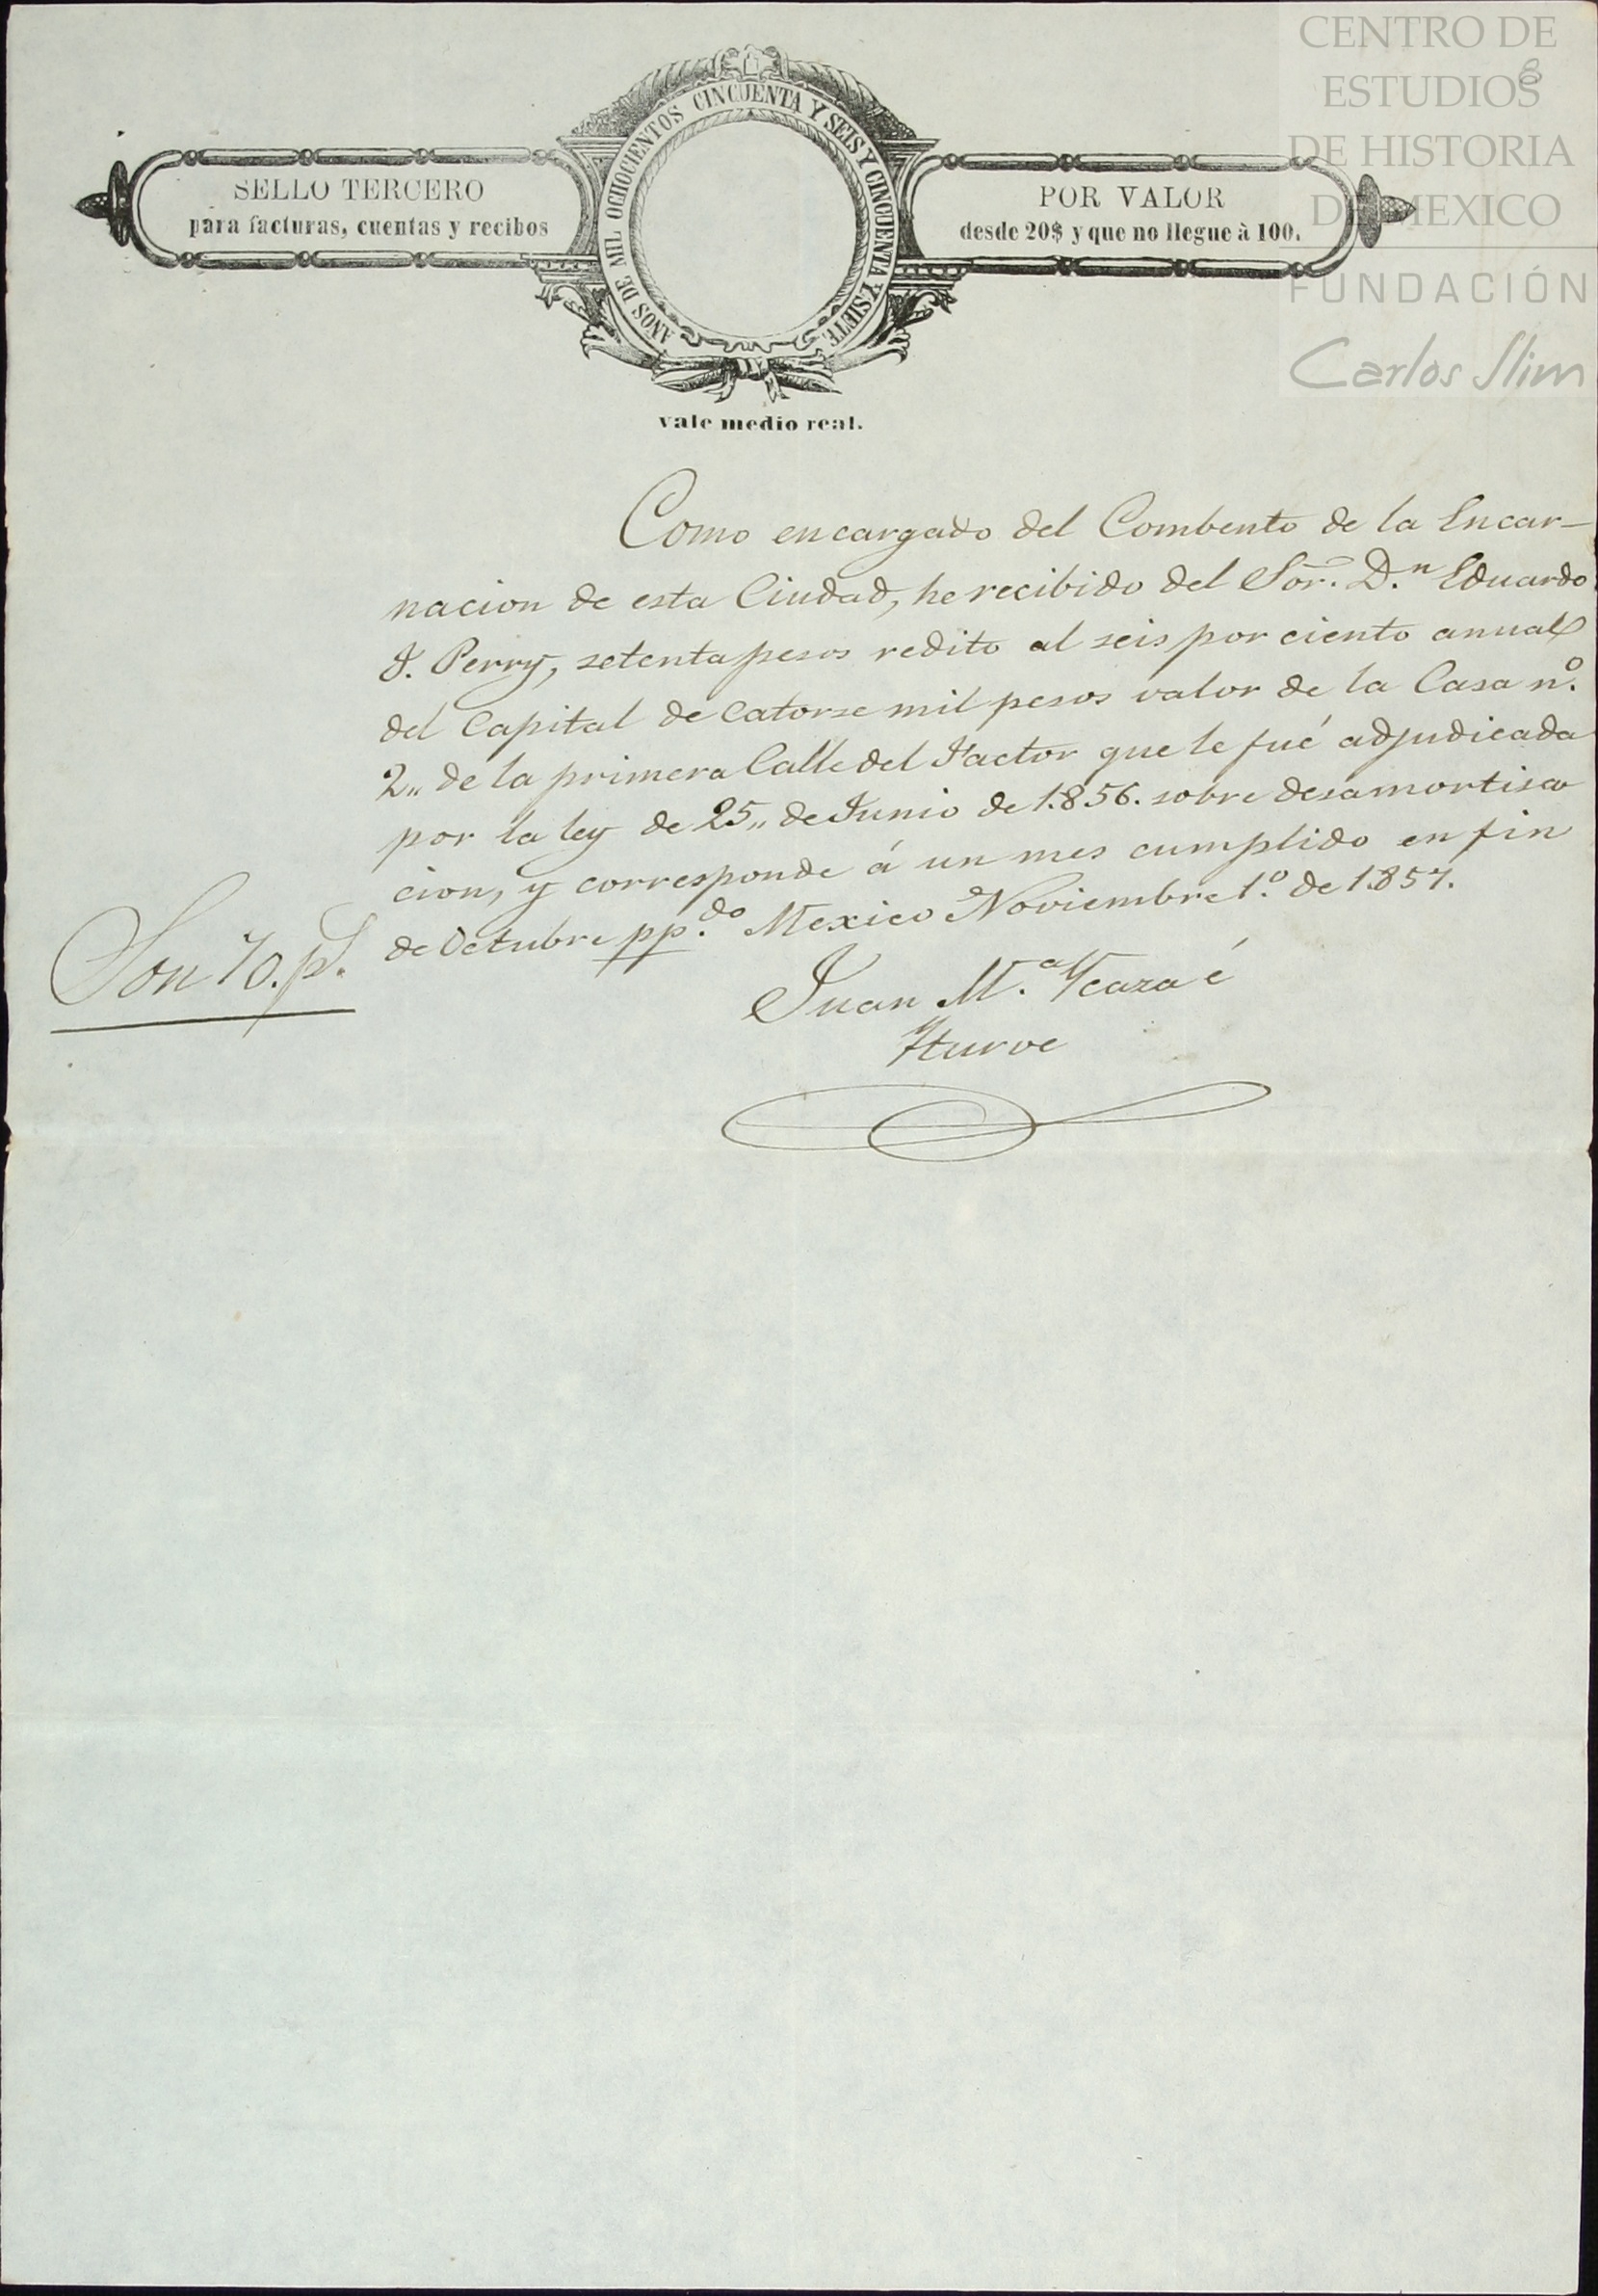 CENTRO DE
ESTUDIOS
DE HISTORIA
DE MEXICO
FUNDACIÓN
Carlos Slim
6
SELLO TERCERO
para facturas, cuentas y recibos
AÑOS DE MIL OCHOCIENTOS CINCUENTA Y SEIS Y CINCUENTA Y SIETE.
POR VALOR
desde 20$ y que no llegue à 100.
vale medio real.
Como encargado del Combento de la Encar-
nacion de esta Ciudad, he recibido del Sõr. D.n Eduardo
J. Perry, setenta pesos redito al seis por ciento anual
del Capital de Catorse mil pesos valor de la Casa nº.
2,, de la primera Calle del Factor que le fué adjudicada
por la ley de 25,, de Junio de 1.856. sobre desamortisa
cion, y corresponde á un mes cumplido en fin
de Octubre pp.do Mexico Noviembre 1.º de 1.857.
Son 70. ps.
Juan M.a Ycaza é
Yturve